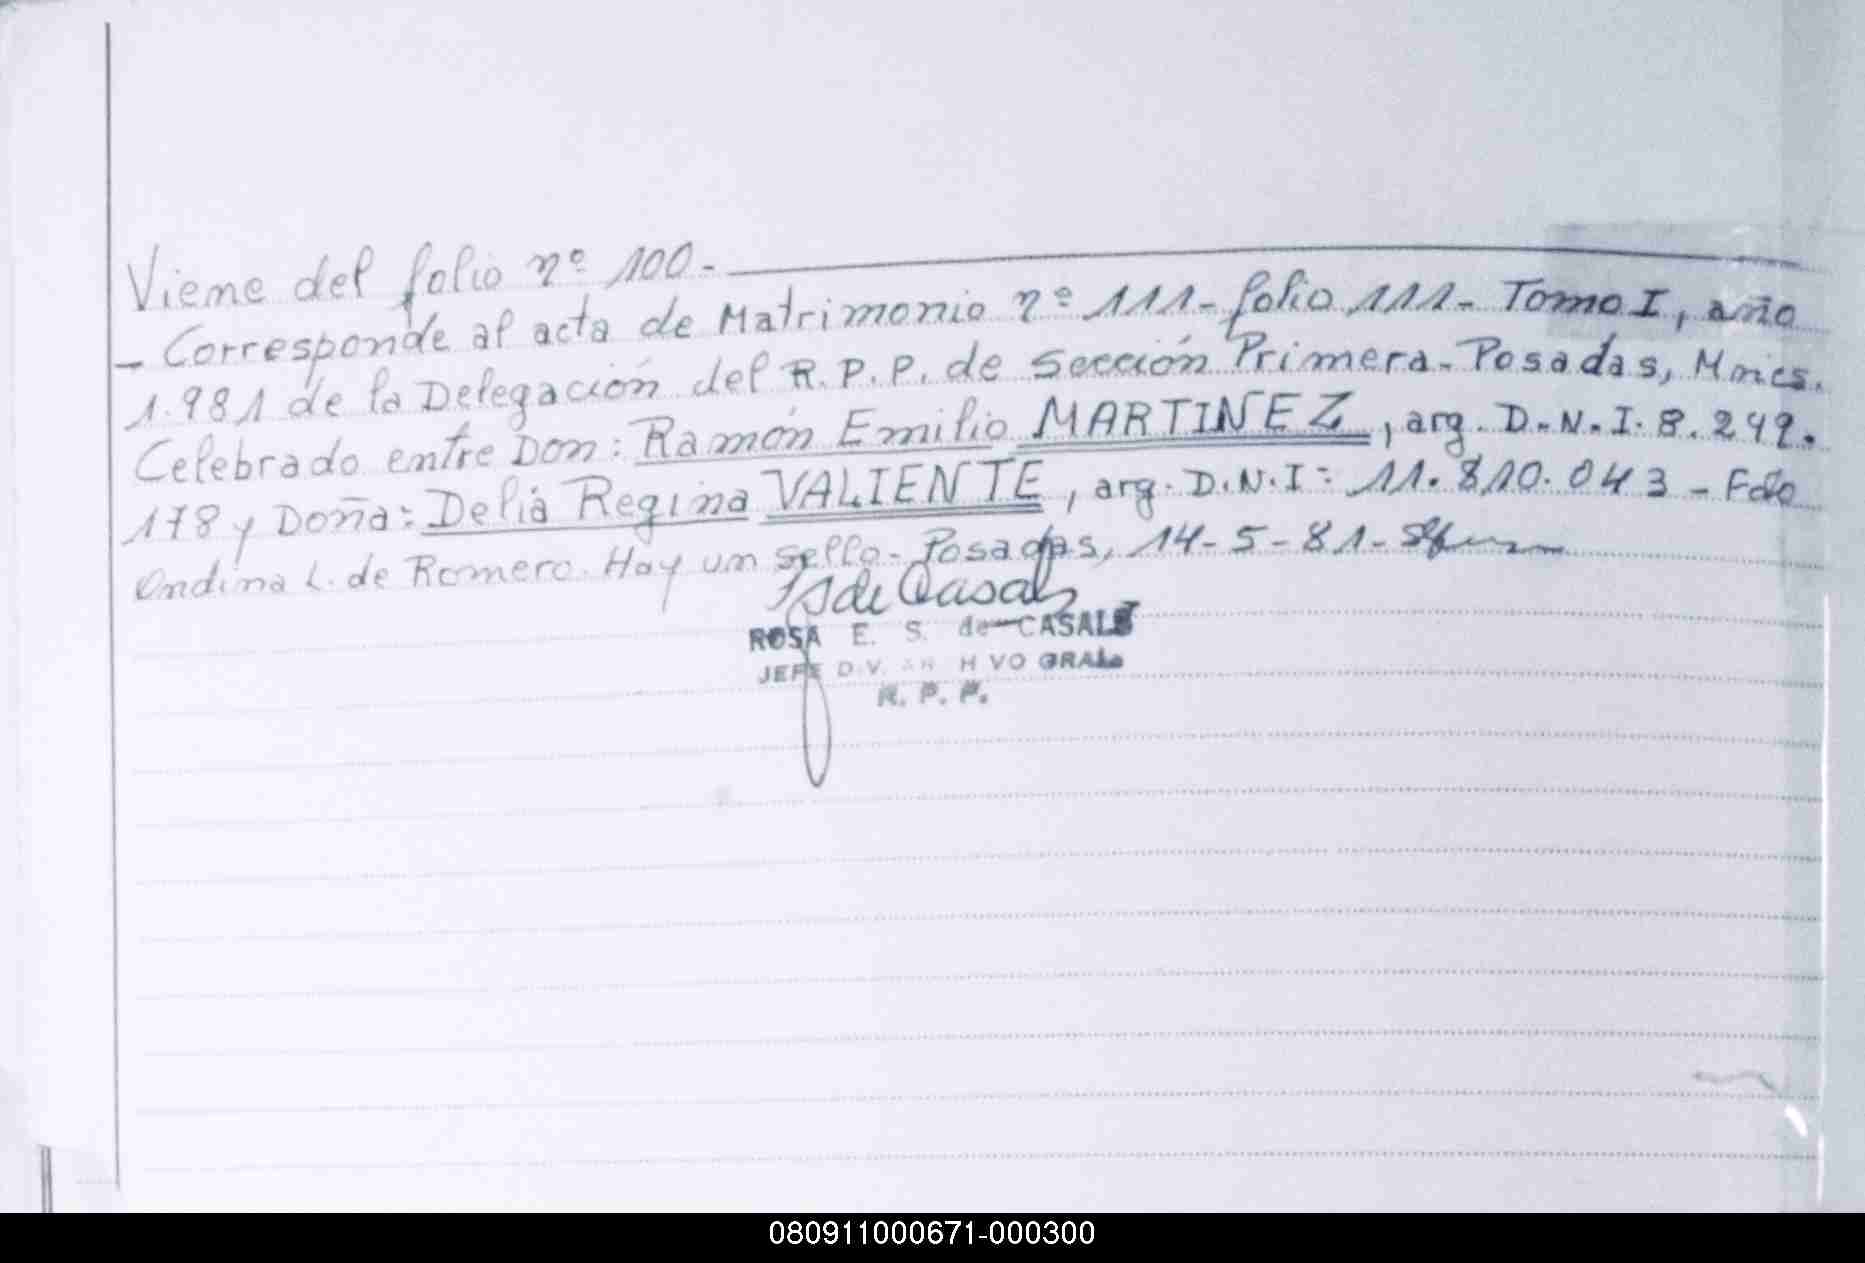 Viene del folio nº 100.-
- Corresponde al acta de Matrimonio nº 111- folio 111- Tomo I, año
1.981 de la Delegación del R.P.P. de Sección Primera-Posadas, Mnes.
Celebrado entre Don: Ramón Emilio MARTINEZ, arg. D.N.I. 8.249.
178 y Doña: Delia Regina VALIENTE, arg. D.N.I: 11.810.043 - Fdo
Ondina L. de Romero. Hay un sello- Posadas, 14-5-81-
de Casals
ROSA E. S. de CASALS
JEFE DIV. ARCHIVO GRAL.
R. P. P.
080911000671-000300